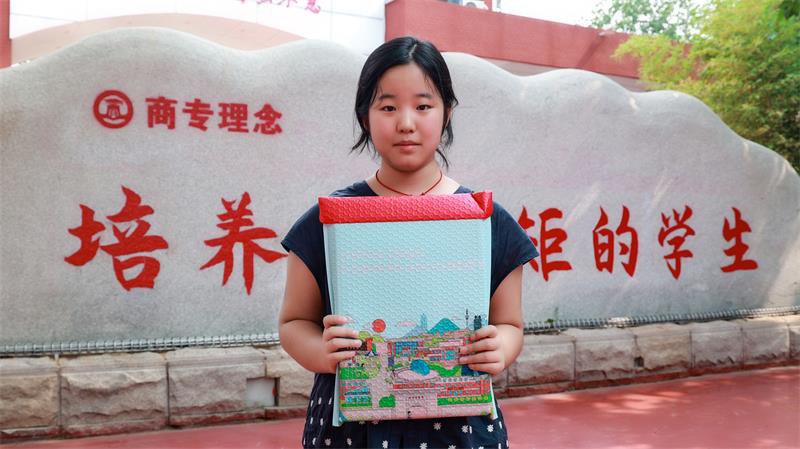 商专理念
培养 矩的学生